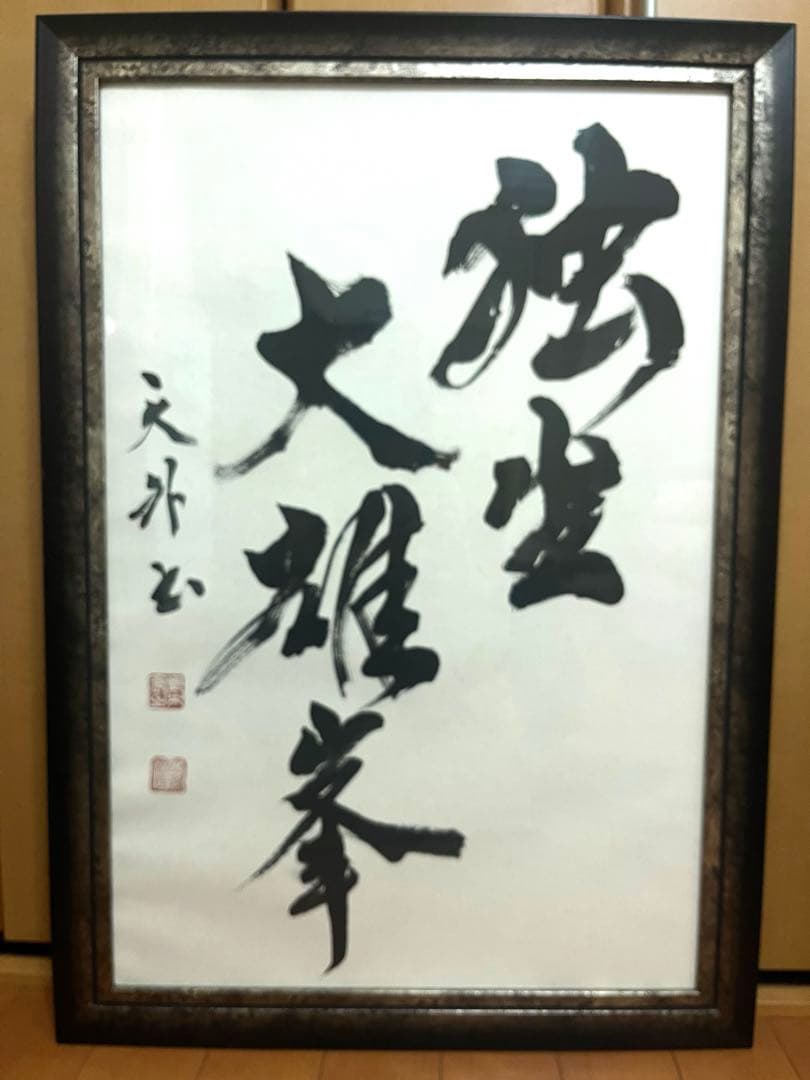 独坐
大雄峯
天外書